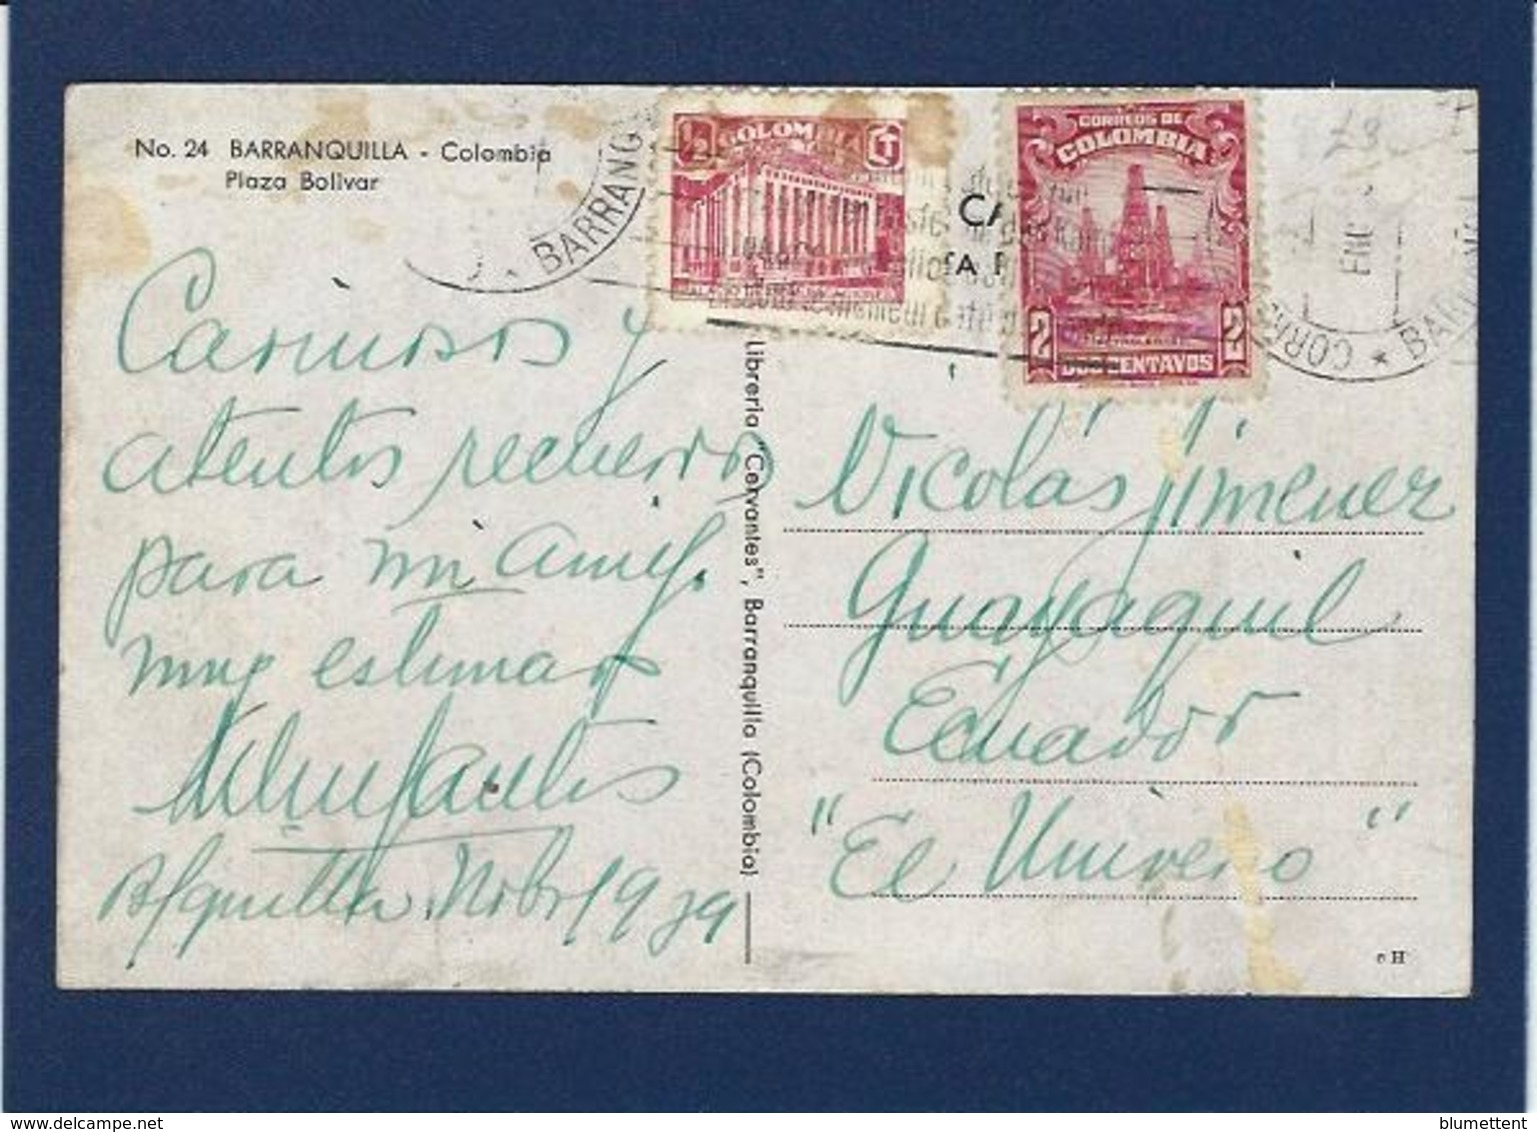 No. 24 BARRANQUILLA - Colombia
Plaza Bolivar
BARRANQ
½ COLOMBIA
CORREOS DE
COLOMBIA
2 2
DOS CENTAVOS
CA
ENE
CORRE
Cariñosos y
atentos recuerdos
para mi amigo
muy estimado
B/quilla. Nobr 1939
Libreria "Cervantes", Barranquilla (Colombia)
Nicolás Jiménez
Guayaquil
Ecuador
"El Universo"
c H
delcampe.net
blumettent